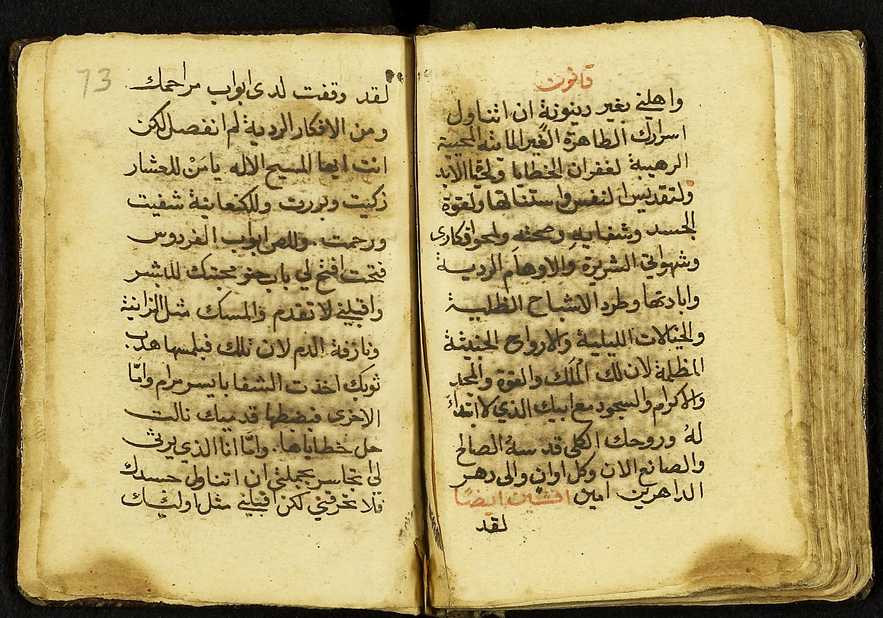 قانون
واهلني بغير دينونة ان اتناول
اسرارك الطاهرة الغير المايته المحيية
الرهيبة لغفران الخطايا ولحياة الابد
ولتقديس النفس واستنارتها ولقوة
الجسد وشفايه وصحته ولمحو افكاري
وشهواتي الشريرة والاوهام الردية
وابادتها وطرد الاشباح الظلية
والخيالات الليلية والارواح الخبيثة
المظلمة لان لك الملك والقوة والمجد
والاكرام والسجود مع ابيك الذي لا ابتداء
له وروحك الكلي قدسه الصالح
والصانع الان وكل اوان والى دهر
الداهرين امين افشين ايضا
لقد
73
لقد وقفت لدى ابواب مراحمك
ومن الافكار الردية لم انفصل لكن
انت ايها المسيح الاله يا من للعشار
زكيت وبررت وللكنعانية شفيت
ورحمت. وللص ابواب الفردوس
فتحت افتح لي باب حنو محبتك للبشر
واقبلني لاتقدم والمسك مثل الزانية
ونازفة الدم لان تلك فبلمسها هدب
ثوبك اخذت الشفا بايسر مرام واما
الاخرى فبضبطها قدميك نالت
حل خطاياها. واما انا الذي يرثى
لي تجاسر بجملتي ان اتناول جسدك
فلا تحرقني لكن اقبلني مثل اوليك